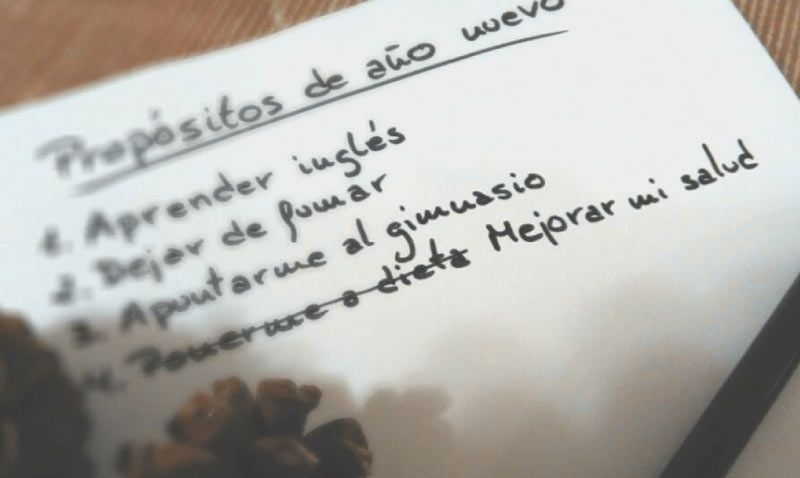 Propósitos de año nuevo
1. Aprender inglés
2. Dejar de fumar
3. Apuntarme al gimnasio
4. Ponerme a dieta Mejorar mi salud